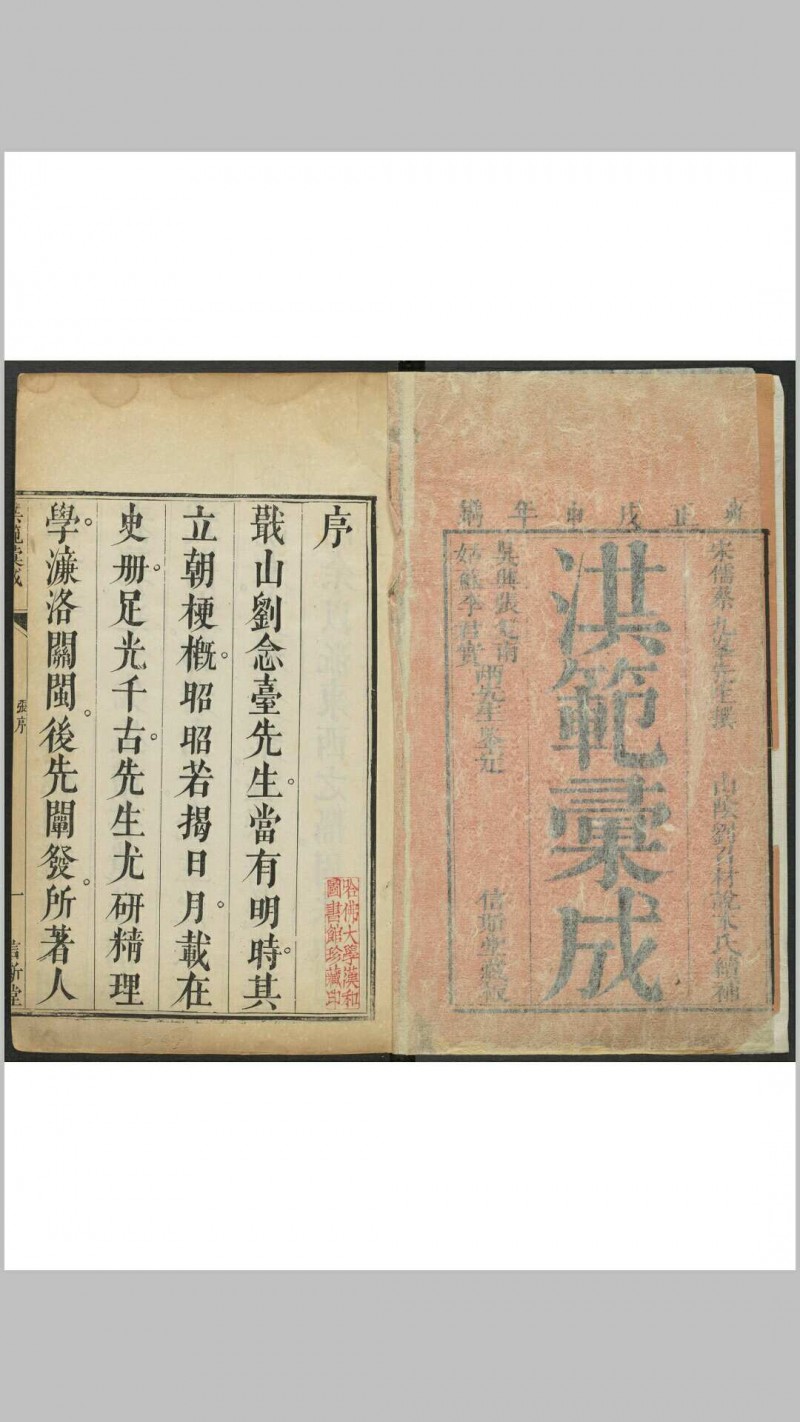 雍正戊申年鐫
宋儒蔡九峯先生撰 山陰劉召材說氏續補
洪範彙成
吳興張南
姑蘇李君實
兩先生鑒定
信斯堂藏板
序
戢山劉念臺先生。當有明時。其
立朝梗槪。昭昭若揭日月。載在
史册。足光千古。先生尤研精理
學。濂洛關閩。後先闡發。所著人
洪範彙成 張序 一 信斯堂
哈佛大學漢和
圖書館珍藏印